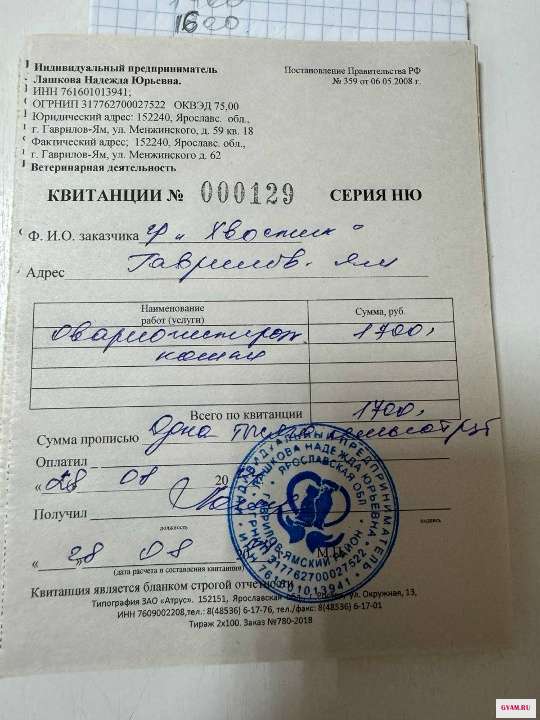 1600.
Индивидуальный предприниматель
Лашкова Надежда Юрьевна.
ИНН 761601013941;
ОГРНИП 317762700027522 ОКВЭД 75,00
Юридический адрес: 152240, Ярославс. обл.,
г. Гаврилов-Ям, ул. Менжинского, д. 59 кв. 18
Фактический адрес; 152240, Ярославс. обл.,
г. Гаврилов-Ям, ул. Менжинского д. 62
Ветеринарная деятельность
Постановление Правительства РФ
№ 359 от 06.05.2008 г.
КВИТАНЦИИ № 000129 СЕРИЯ НЮ
Ф. И.О. заказчика гр „ Хвостик "
Адрес Гаврилов. Ям
Наименование работ (услуги) Сумма, руб.
Овариогистерэк. 1700,
кошки
Всего по квитанции 1700,
Сумма прописью Одна тысяча семьсот руб
Оплатил
«28 08 20
Получил
должность подпись
« 28 08 20 М.П.
(дата расчета и составления квитанции)
Квитанция является бланком строгой отчетности
Типография ЗАО «Атрус». 152151, Ярославская обл., г. Ростов, ул. Окружная, 13,
ИНН 7609002208,тел.: 8(48536) 6-17-76, тел./факс: 8(48536) 6-17-01
Тираж 2х100. Заказ №780-2018
ИНДИВИДУАЛЬНЫЙ ПРЕДПРИНИМАТЕЛЬ
ЛАШКОВА НАДЕЖДА ЮРЬЕВНА
ЯРОСЛАВСКАЯ ОБЛ
ГАВРИЛОВ-ЯМСКИЙ РАЙОН
ОГРНИП 317762700027522
ИНН 761601013941
GYAM.RU